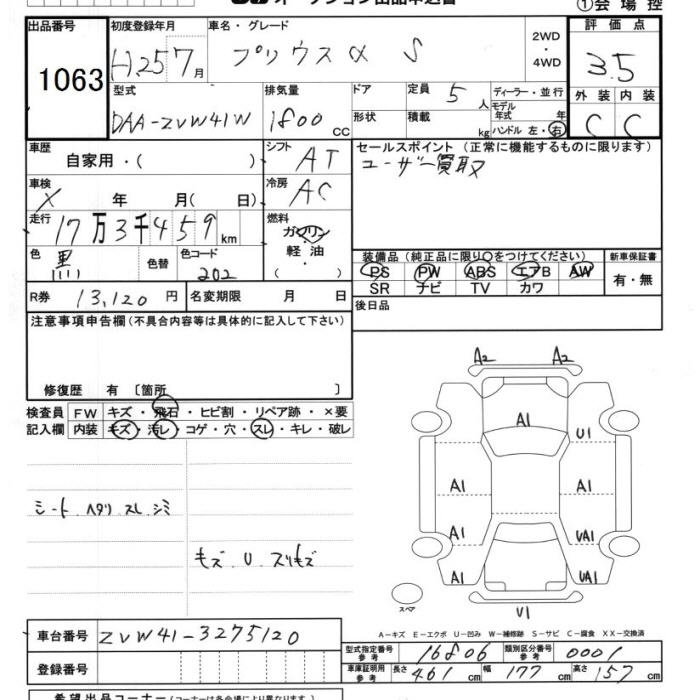 ①会場控
出品番号
1063
初度登録年月
H25 7月
車名・グレード
プリウスα S
2WD
・
4WD
評価点
3.5
外装 内装
C C
型式
DAA-ZVW41W
排気量
1800 CC
ドア
形状
定員 5人
積載 kg
ディーラー・並行
モデル年式 年
ハンドル 左・右
車歴
自家用・( )
シフト
AT
セールスポイント (正常に機能するものに限ります)
ユーザー買取
車検
X 年 月( 日)
冷房
AC
走行
17万3千459km
燃料
ガソリン
軽油
( )
色
黒
色替
色コード
202
装備品 (純正品に限り○をつけてください)
PS PW ABS エアB AW
SR ナビ TV カワ
新車保証書
有・無
R券 13,120円
名変期限 月 日
後日品
注意事項申告欄 (不具合内容等は具体的に記入して下さい)
修復歴 有 〔箇所 〕
検査員 FW キズ・飛石・ヒビ割・リペア跡・×要
記入欄 内装 キズ・汚レ・コゲ・穴・スレ・キレ・破レ
シート ヘタリ スレ シミ
キズ U スリキズ
A2 A2
A1
U1
A1 A1
A1 UA1
A1 UA1
スペア
V1
A-キズ E-エクボ U-凹み W-補修跡 S-サビ C-腐食 XX-交換済
車台番号 ZVW41-3275120
登録番号
型式指定番号 参考 16806 類別区分番号 参考 0001
車庫証明用 参考 長さ 461cm 幅 177cm 高さ 157cm
希望出品コーナー (コーナーは各会場により異なります)